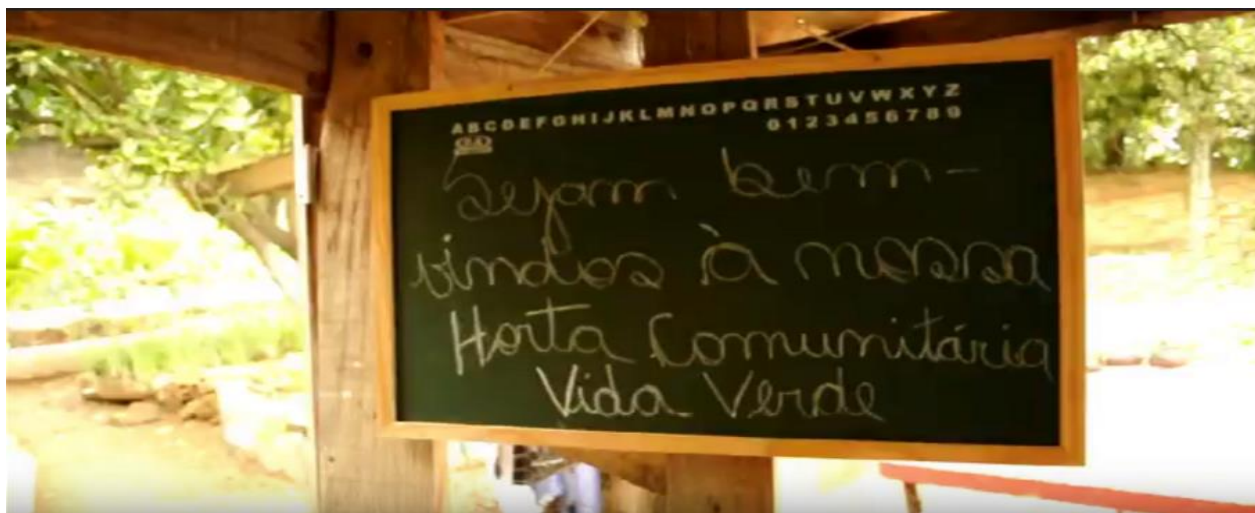 ABCDEFGHIJKLMNOPQRSTUVWXYZ
0123456789
Sejam bem-
vindos à nossa
Horta Comunitária
Vida Verde